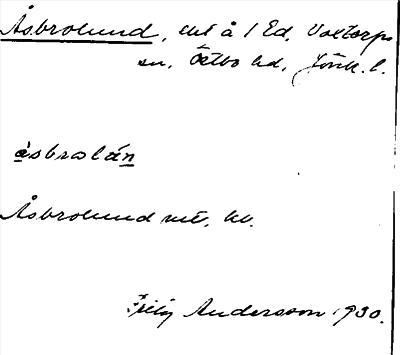 Åsbrolund, utt å 1 Ed, Voxtorps
sn, Östbo hd, Jönk. l.
åsbrolún
Åsbrolund
Andersson 1930.